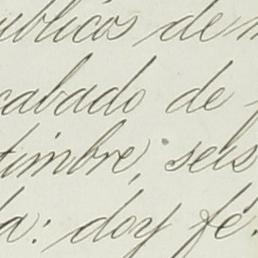 ublicos de
cabado de
timbre; seis
da: doy fé.